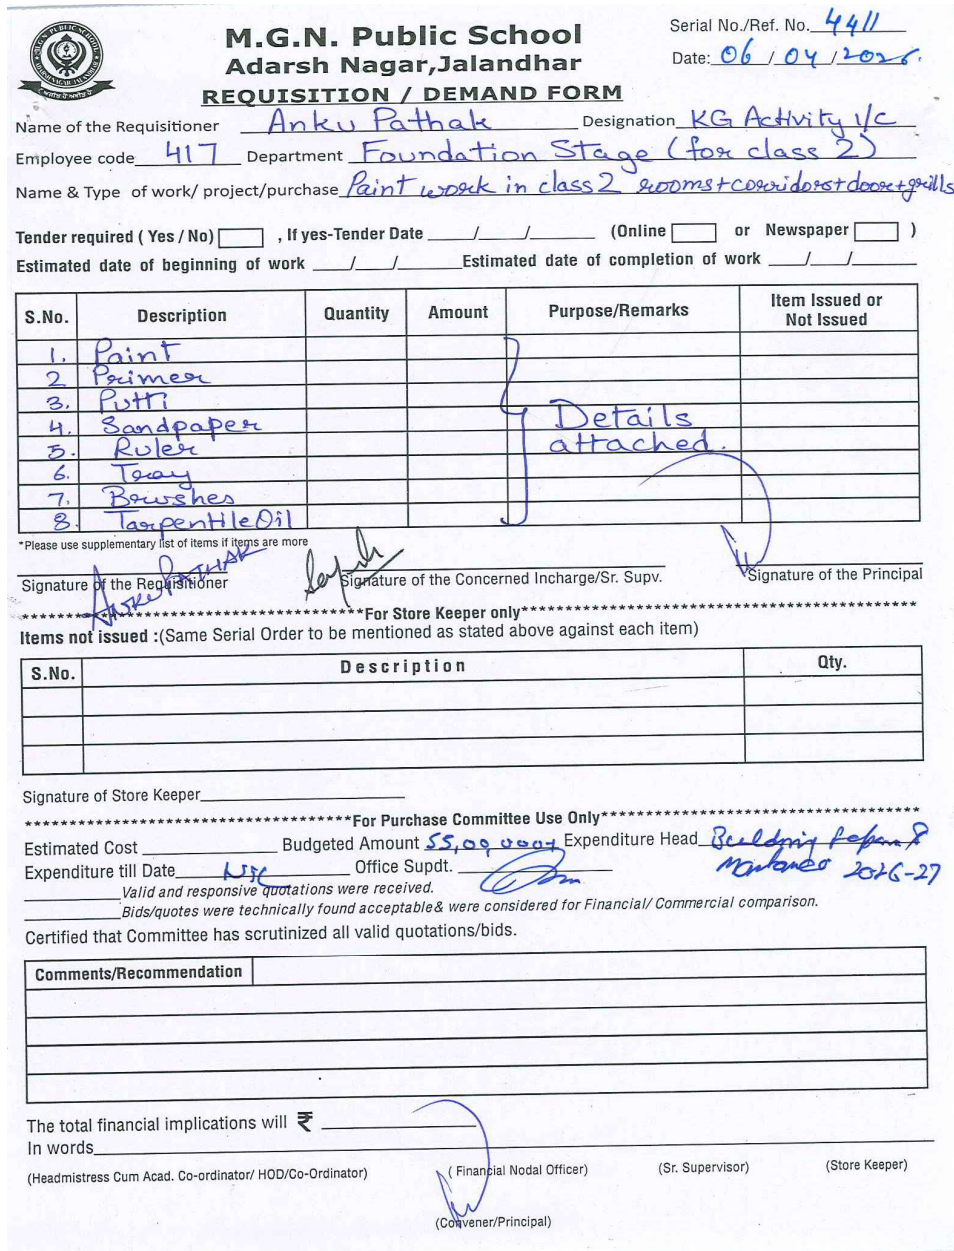 M.G.N. Public School
Adarsh Nagar,Jalandhar
REQUISITION / DEMAND FORM
Serial No./Ref. No. 4411
Date: 06 / 04 / 2026.
Name of the Requisitioner Anku Pathak Designation KG Activity i/c
Employee code 417 Department Foundation Stage (for class 2)
Name & Type of work/ project/purchase Paint work in class 2 rooms+corridors+door+grills
Tender required ( Yes / No) , If yes-Tender Date ___/___/___ (Online or Newspaper )
Estimated date of beginning of work ___/___/___ Estimated date of completion of work ___/___/___
S.No. Description Quantity Amount Purpose/Remarks Item Issued or Not Issued
1. Paint
2 Primer
3. Putti
4. Sandpaper Details
5. Ruler attached.
6. Tray
7. Brushes
8. TarpentileOil
*Please use supplementary list of items if items are more
Signature of the Requisitioner Signature of the Concerned Incharge/Sr. Supv. Signature of the Principal
Anku PATHAK
************************************For Store Keeper only************************************
Items not issued :(Same Serial Order to be mentioned as stated above against each item)
S.No. Description Qty.
Signature of Store Keeper
************************************For Purchase Committee Use Only************************************
Estimated Cost Budgeted Amount Expenditure Head Building
Expenditure till Date Office Supdt. 2026-27
Valid and responsive quotations were received.
Bids/quotes were technically found acceptable& were considered for Financial/ Commercial comparison.
Certified that Committee has scrutinized all valid quotations/bids.
Comments/Recommendation
The total financial implications will ₹
In words
(Headmistress Cum Acad. Co-ordinator/ HOD/Co-Ordinator) ( Financial Nodal Officer) (Sr. Supervisor) (Store Keeper)
(Convener/Principal)